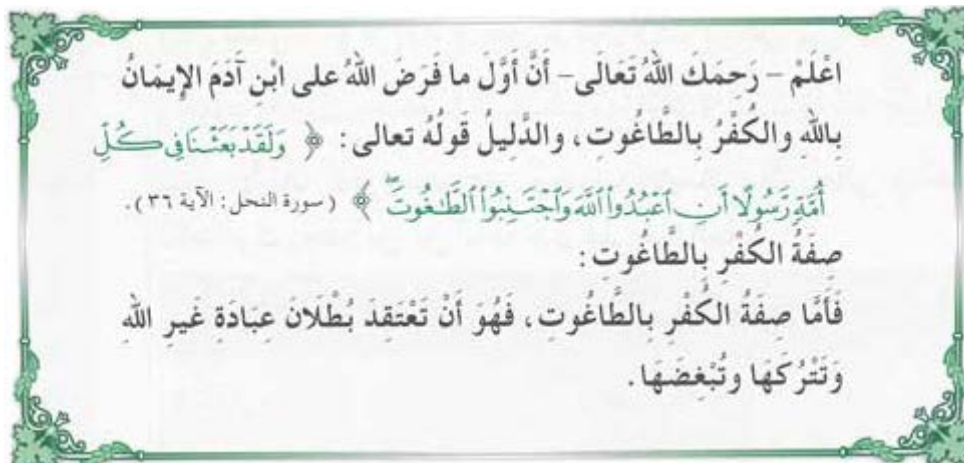 اعْلَمْ - رَحِمَكَ اللهُ تَعَالَى - أَنَّ أَوَّلَ ما فَرَضَ اللهُ على ابْنِ آدَمَ الإِيمَانُ
بِاللهِ والكُفْرُ بِالطَّاغُوتِ، والدَّلِيلُ قَوْلُهُ تعالى: ﴿ وَلَقَدْ بَعَثْنَا فِي كُلِّ
أُمَّةٍ رَّسُولًا أَنِ اعْبُدُوا اللَّهَ وَاجْتَنِبُوا الطَّاغُوتَ ﴾ (سورة النحل: الآية ٣٦).
صِفَةُ الكُفْرِ بِالطَّاغُوتِ:
فَأَمَّا صِفَةُ الكُفْرِ بِالطَّاغُوتِ، فَهُوَ أَنْ تَعْتَقِدَ بُطْلَانَ عِبَادَةِ غَيرِ اللهِ
وَتَتْرُكَهَا وتُبْغِضَهَا.